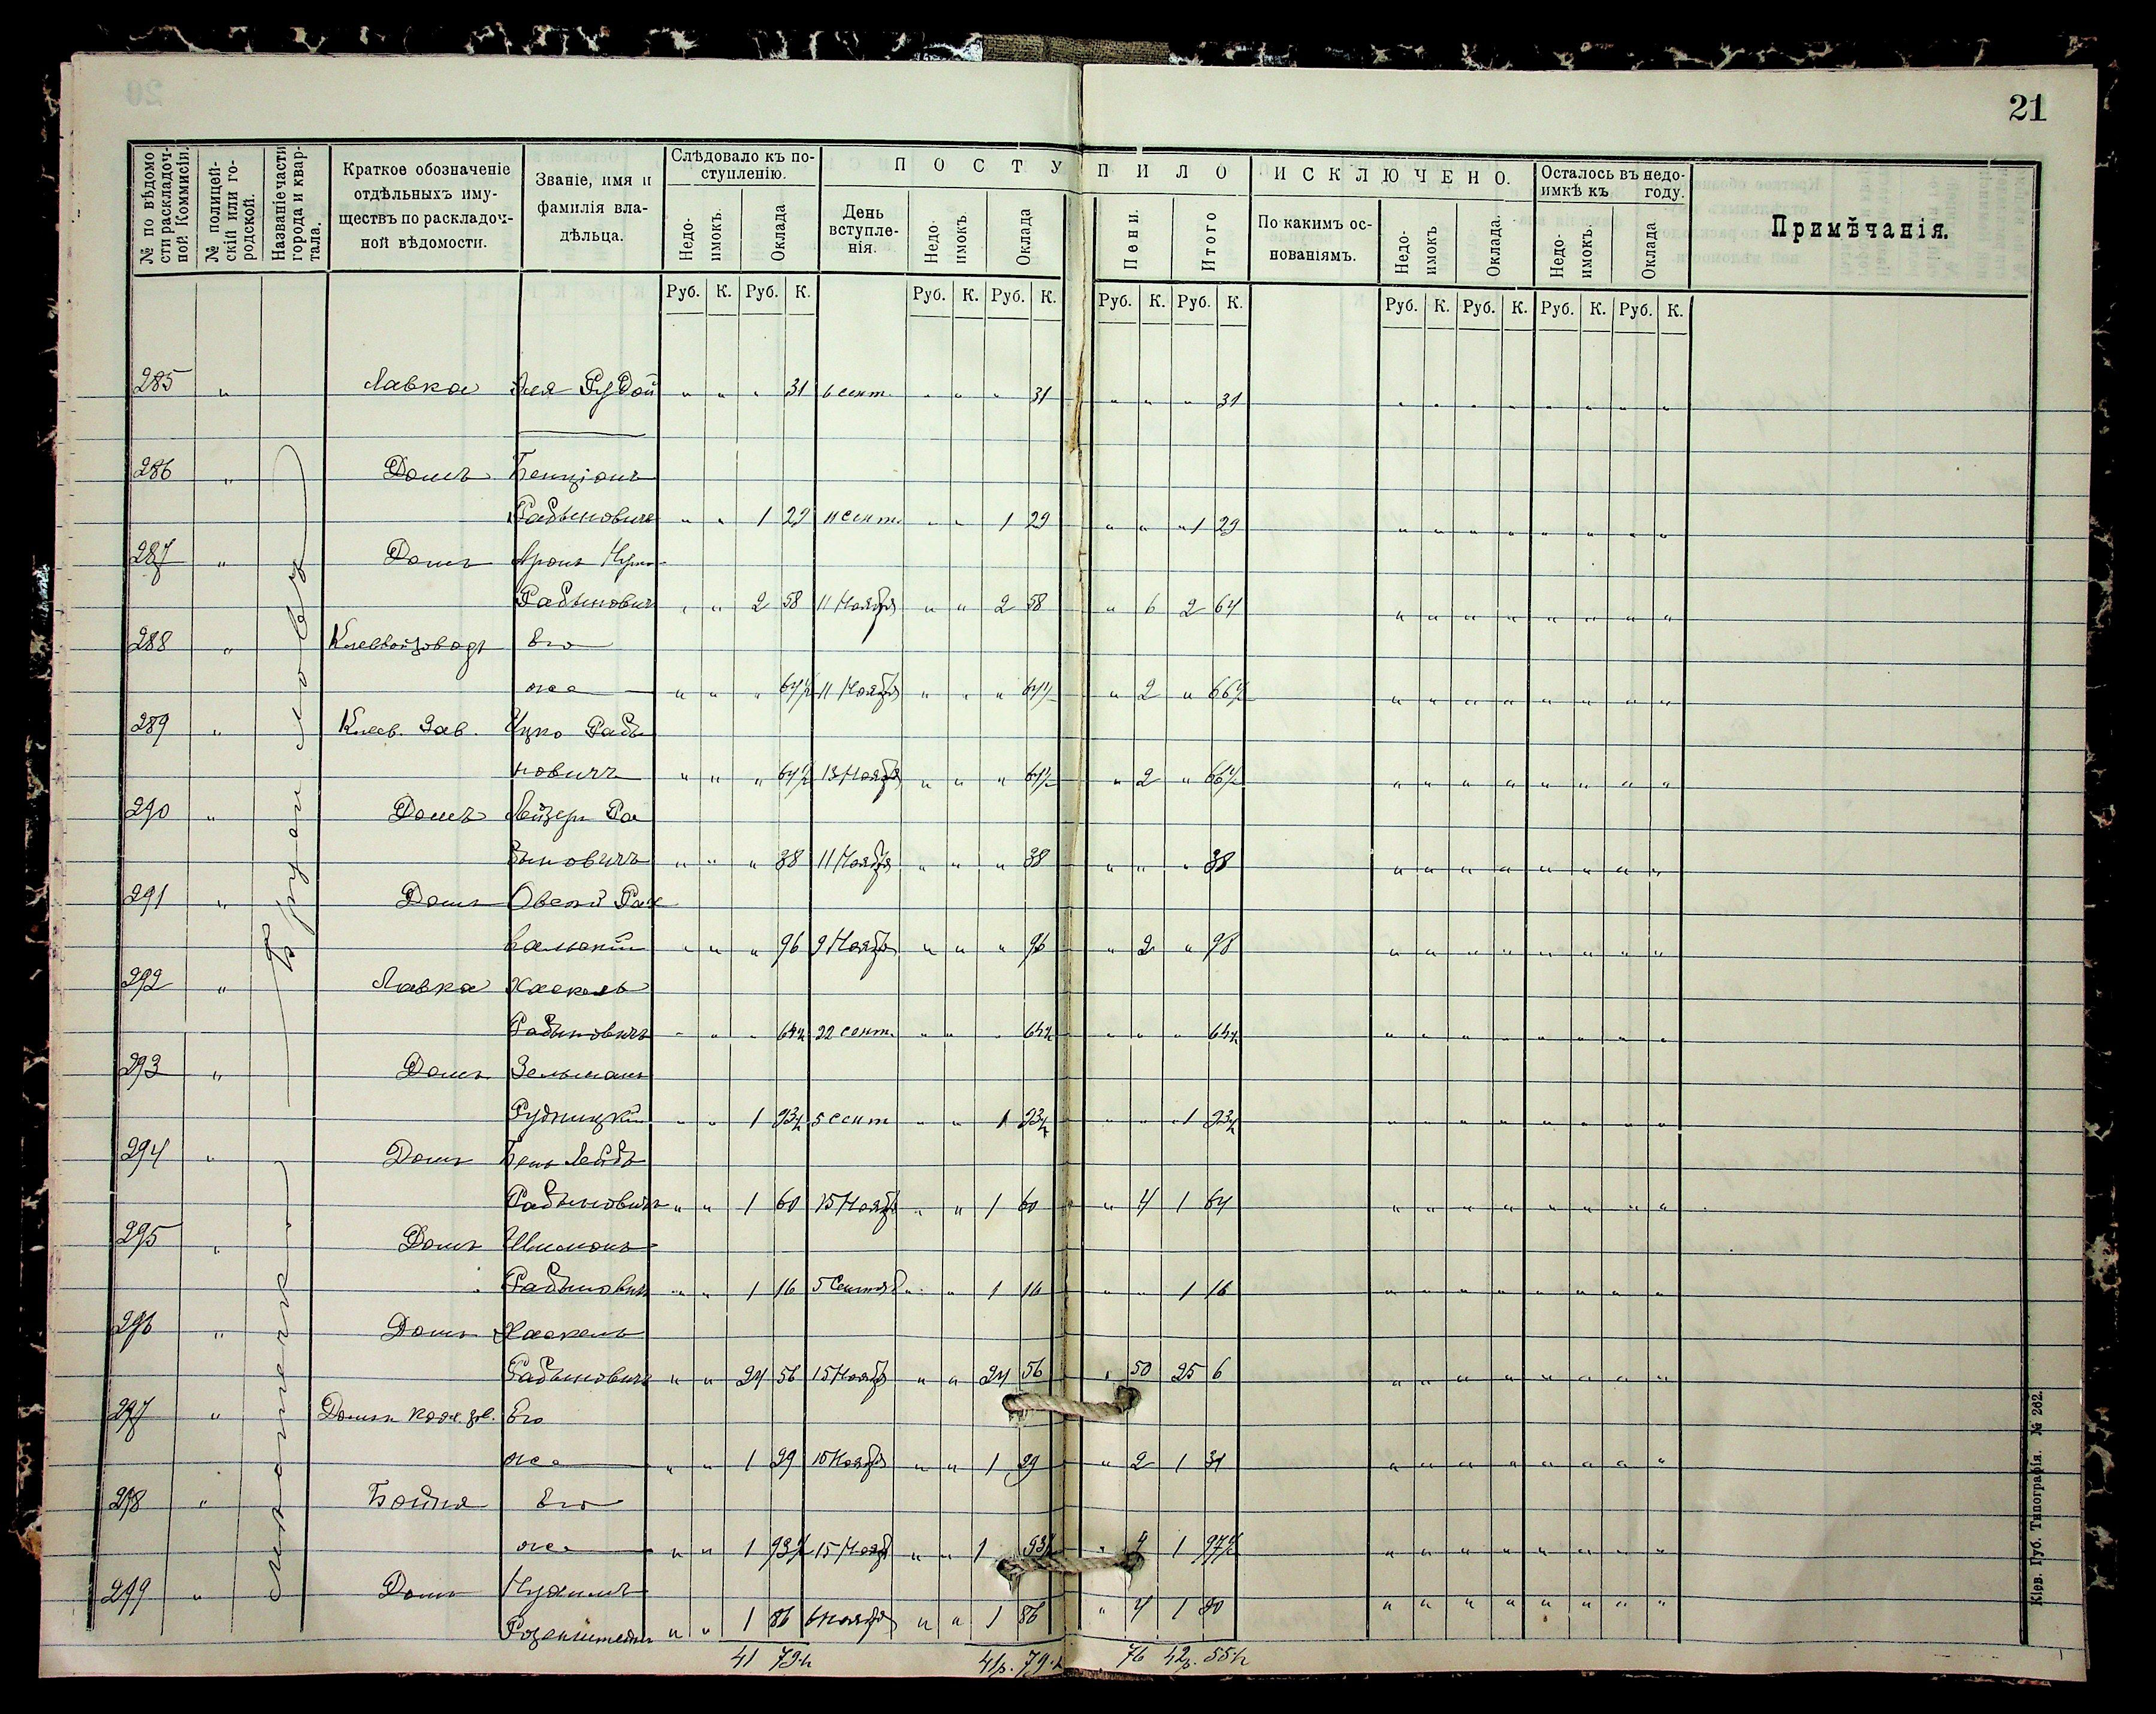 21
№ по вѣдомости раскладочной Коммисіи.
№ полицейскій или городской.
Названіе части города и квартала.
Краткое обозначеніе отдѣльныхъ имуществъ по раскладочной вѣдомости.
Званіе, имя и фамилія владѣльца.
Слѣдовало къ поступленію.
Недоимокъ. Оклада
ПОСТУПИЛО
День вступленія. Недоимокъ. Оклада Пени. Итого
ИСКЛЮЧЕНО.
По какимъ основаніямъ. Недоимокъ Оклада.
Осталось въ недоимкѣ къ году.
Недоимокъ. Оклада
Примѣчанія.
Руб. К. Руб. К. Руб. К. Руб. К. Руб. К. Руб. К. Руб. К. Руб. К. Руб. К. Руб. К.
285 " Лавка Рудой " " " 31 6 сент. " " " 31 " " " 31
286 " Домъ Бенціонъ
Рабиновичъ " " 1 29 11 сент. " " 1 29 " " " 1 29
287 " Домъ Аронъ
Рабиновичъ " " 2 58 11 Ноября " " 2 58 " 6 2 64
288 " Его
же " " " 64½ 11 Ноября " " " 64½ " 2 " 66½
289 " Клеев. Зав. Ицко Раби
новичъ " " " 64½ 13 Ноября " " " 64½ " 2 " 66½
290 " Домъ Лейзеръ Ра
биновичъ " " " 38 11 Ноября " " " 38 " " " 38
291 " Домъ Овсей
" " " 96 9 Ноября " " " 96 " 2 " 98
292 " Лавка Хаскель
Рабиновичъ " " " 64½ 22 сент. " " " 64½ " " " 64½
293 " Домъ Зельманъ
Рудницкій " " 1 93½ 5 сент " " 1 93½ " " 1 93½
294 " Домъ Лейбъ
Рабиновичъ " " 1 60 15 Ноября " " 1 60 " 4 1 64
295 " Домъ Шимонъ
Рабиновичъ " " 1 16 5 Сентяб " " 1 16 " " 1 16
296 " Домъ Хаскель
Рабиновичъ " " 24 56 15 Ноября " " 24 56 " 50 25 6
297 " Домъ Его
же " " 1 29 15 Ноября " " 1 29 " 2 1 31
298 " Бойня Его
же " " 1 93½ 15 Нояб " " 1 93½ " 4 1 97½
299 " Домъ Нухимъ
Розенштейнъ " " 1 86 6 ноября " " 1 86 " 4 1 90
41 79½ 41р. 79½ 76 42р. 55½
Кіев. Губ. Типографія. № 262.